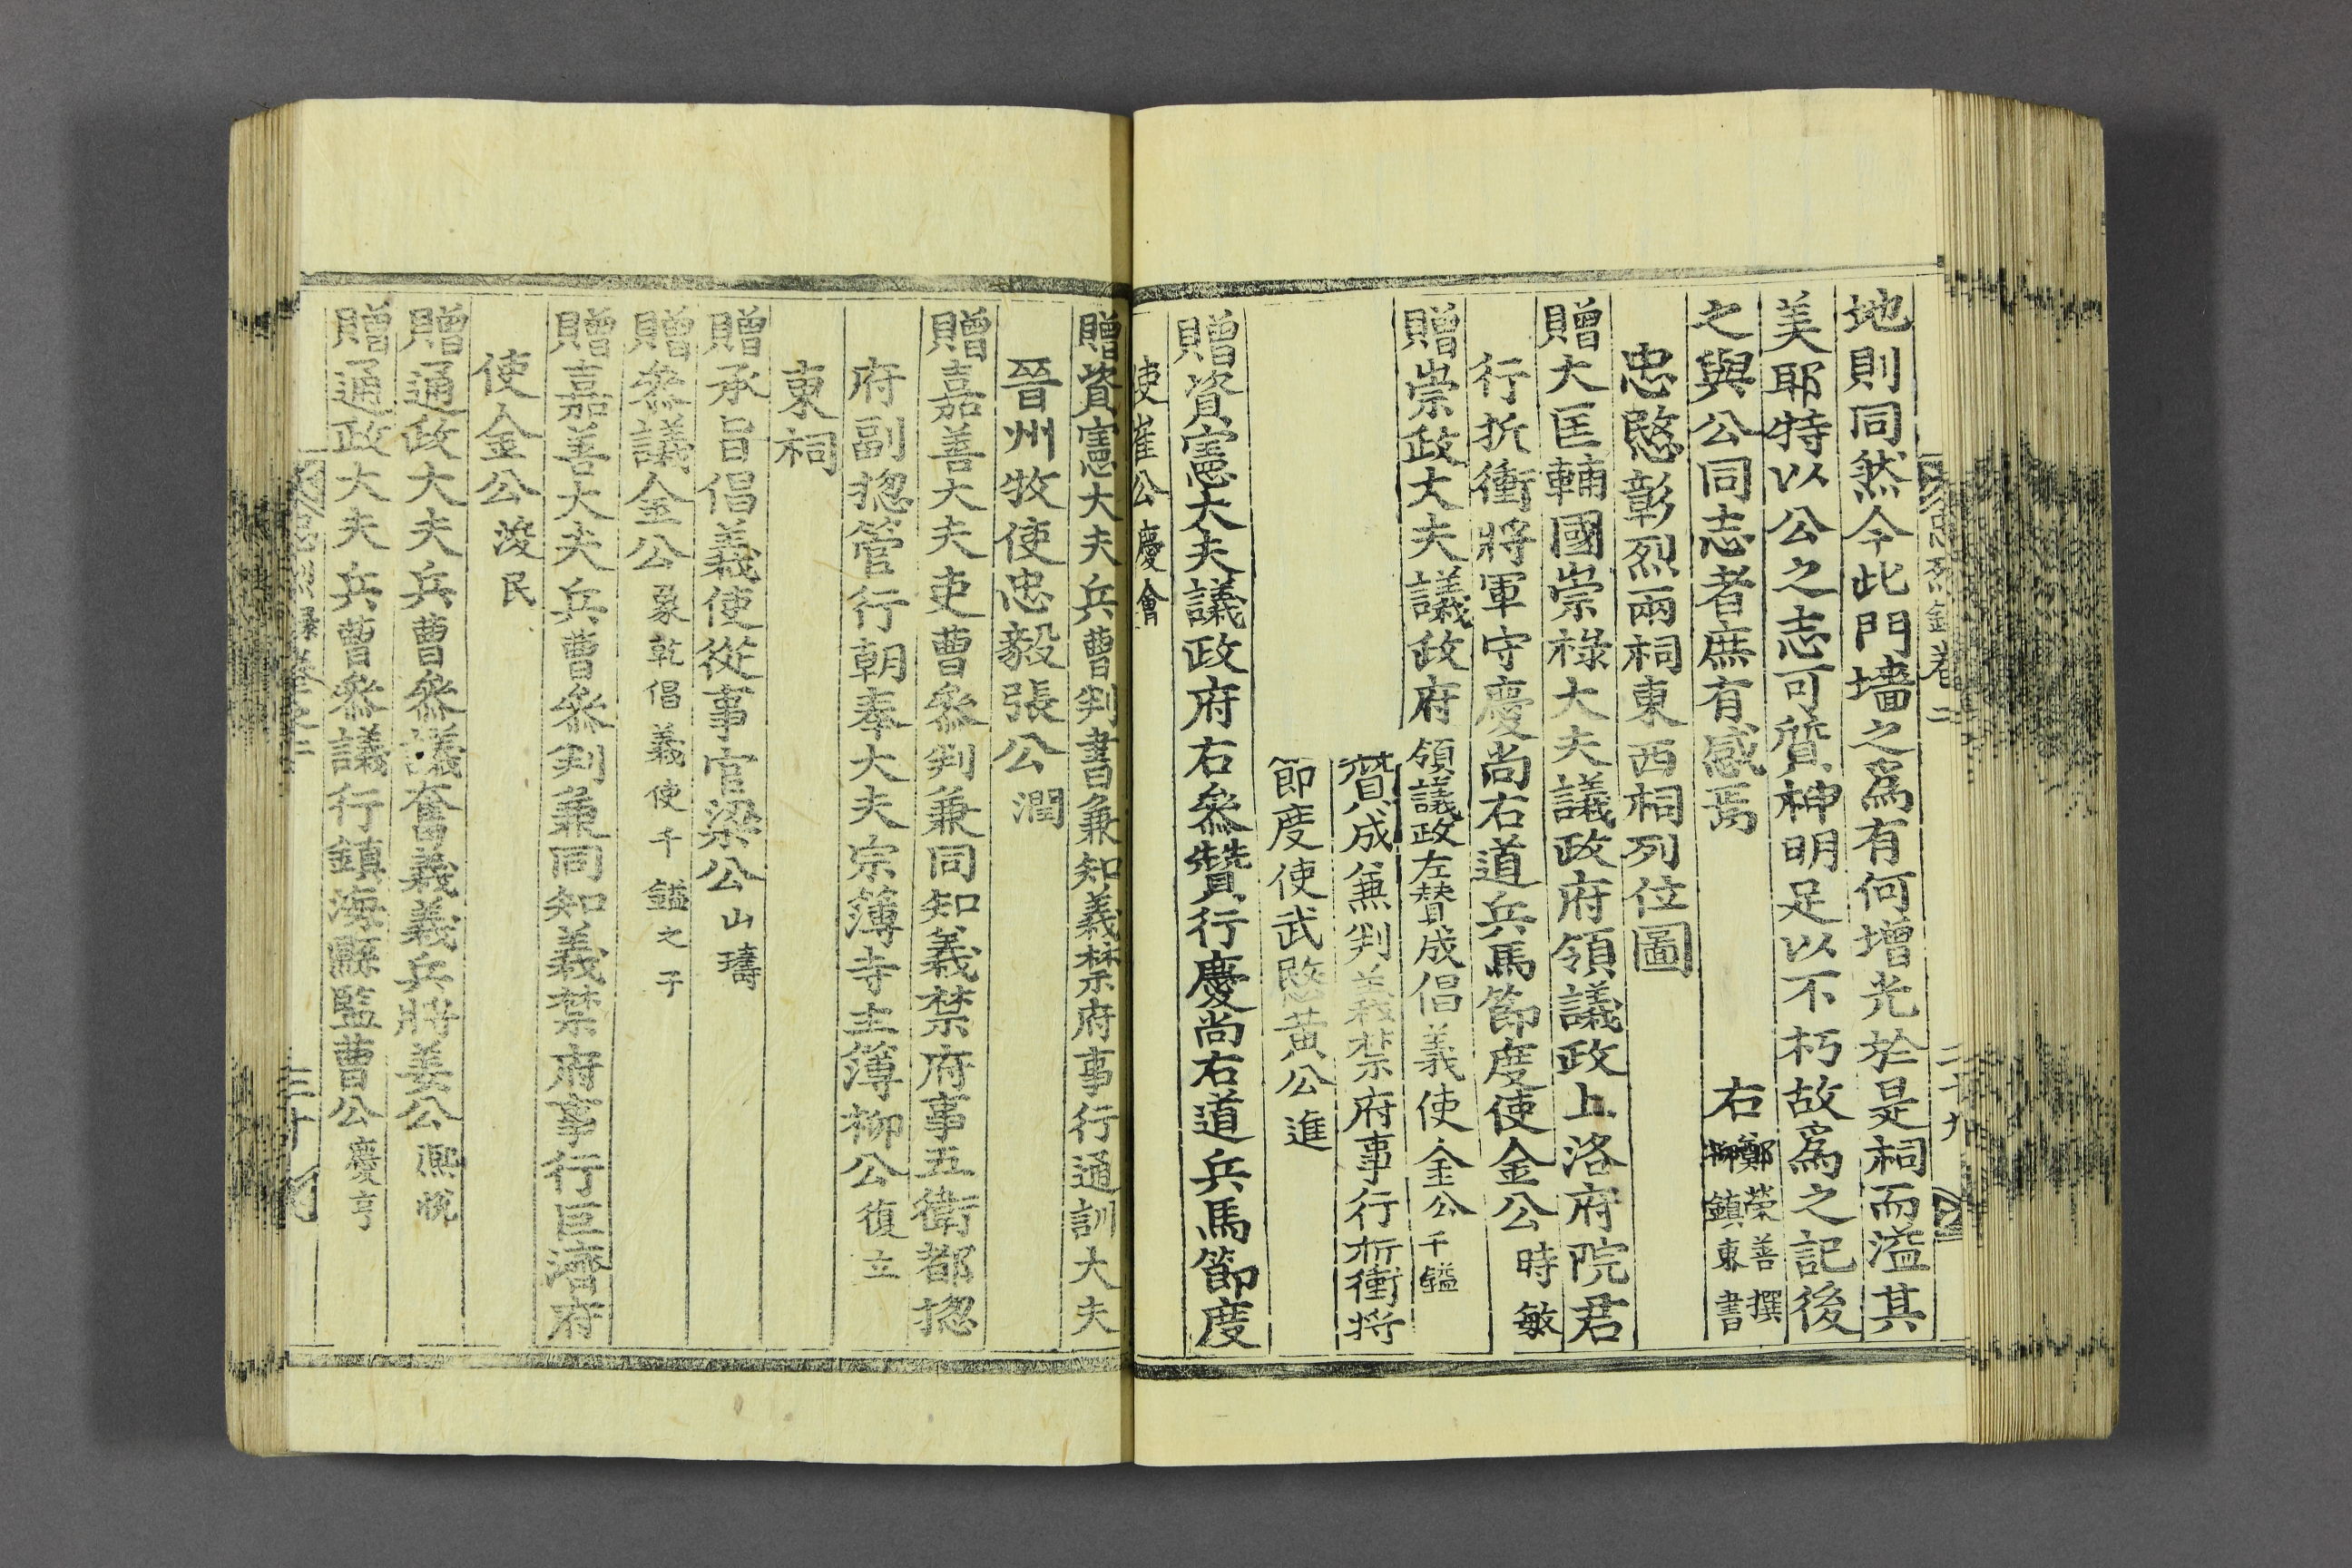 地則同然今此門墻之爲有何增光於是祠而溢其
美耶特以公之志可質神明足以不朽故爲之記後
之與公同志者庶有感焉
右鄭榮善撰
柳鎭東書
忠愍彰烈兩祠東西祠列位圖
贈大匡輔國崇祿大夫議政府領議政上洛府院君
行折衝將軍守慶尚右道兵馬節度使金公時敏
贈崇政大夫議政府領議政左贊成倡義使金公千鎰
贊成兼判義禁府事行折衝將
節度使武愍黃公進
贈資憲大夫議政府右參贊行慶尚右道兵馬節度
使崔公慶會
忠烈錄卷二
二十九
贈資憲大夫兵曹判書兼知義禁府事行通訓大夫
晉州牧使忠毅張公潤
贈嘉善大夫吏曹參判兼同知義禁府事五衛都摠
府副摠管行朝奉大夫宗簿寺主簿柳公復立
東祠
贈承旨倡義使從事官梁公山璹
贈參議金公象乾倡義使千鎰之子
贈嘉善大夫兵曹參判兼同知義禁府事行巨濟府
使金公浚民
贈通政大夫兵曹參議奮義義兵將姜公熙悅
贈通政大夫兵曹參議行鎭海縣監曹公慶亨
忠烈錄卷之二
三十